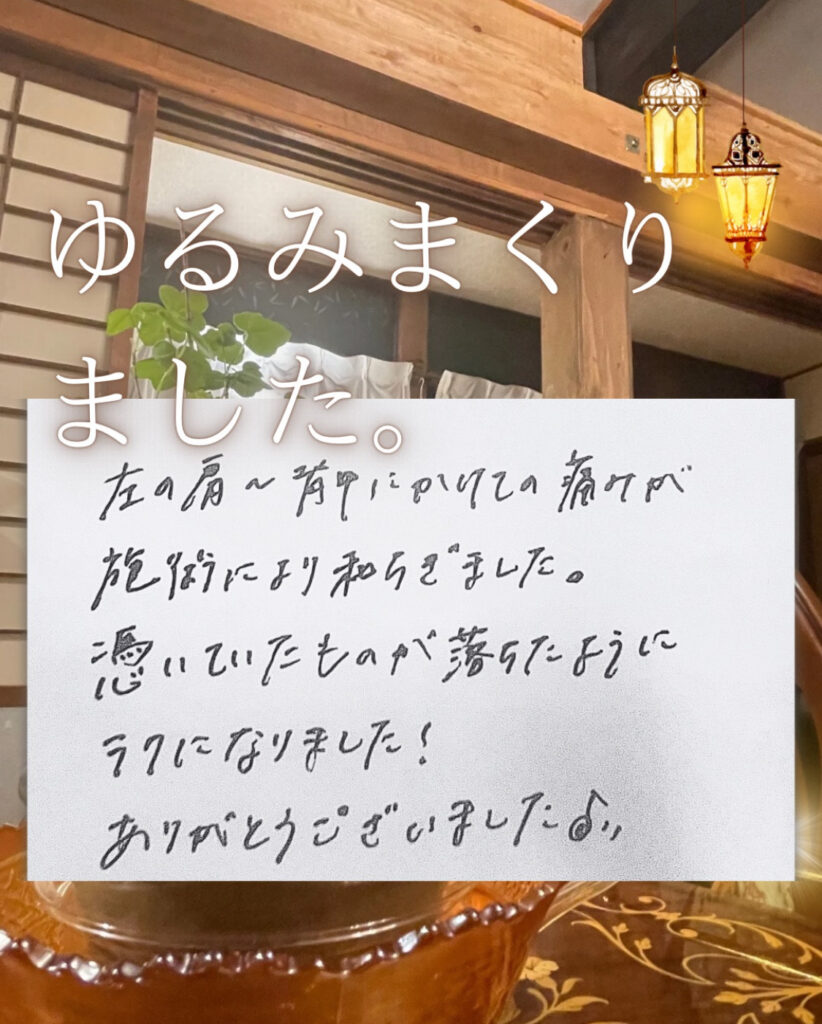 ゆるみまくり
ました。
左の肩～背中にかけての痛みが
施術により和らぎました。
憑いていたものが落ちたように
ラクになりました！
ありがとうございました♪〃